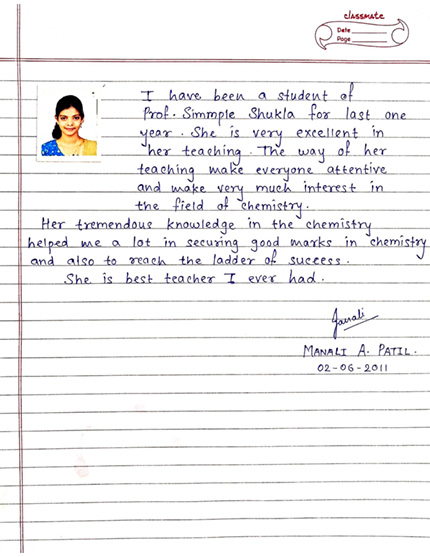 classmate
Date
Page
I have been a student of
Prof. Simmple Shukla for last one
year. She is very excellent in
her teaching. The way of her
teaching make everyone attentive
and make very much interest in
the field of chemistry.
Her tremendous knowledge in the chemistry
helped me a lot in securing good marks in chemistry
and also to reach the ladder of success.
She is best teacher I ever had.
MANALI A. PATIL.
02-06-2011